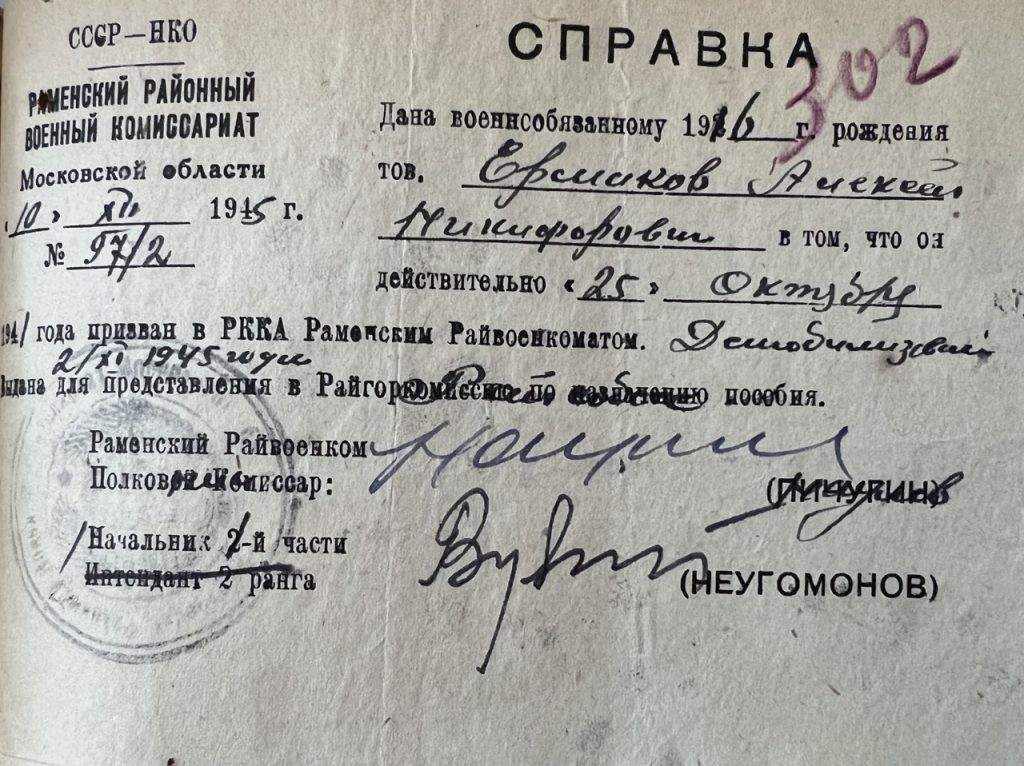 СССР—НКО
РАМЕНСКИЙ РАЙОННЫЙ
ВОЕННЫЙ КОМИССАРИАТ
Московской области
«10» XII 1945 г.
№ 97/2
СПРАВКА
302
Дана военнсобязанному 1916 г. рождения
тов. Ермаков Алексей
Никифорович в том, что он
действительно «25» Октября
1941 года призван в РККА Раменским Райвоенкоматом. Демобилизован
2/XI 1945 года
Выдана для представления в Райгоркомиссию по назначению пособия.
Раменский Райвоенком
Полковой Комиссар:
(ПИЧУГИН)
Начальник 1-й части
Интендант 2 ранга
(НЕУГОМОНОВ)